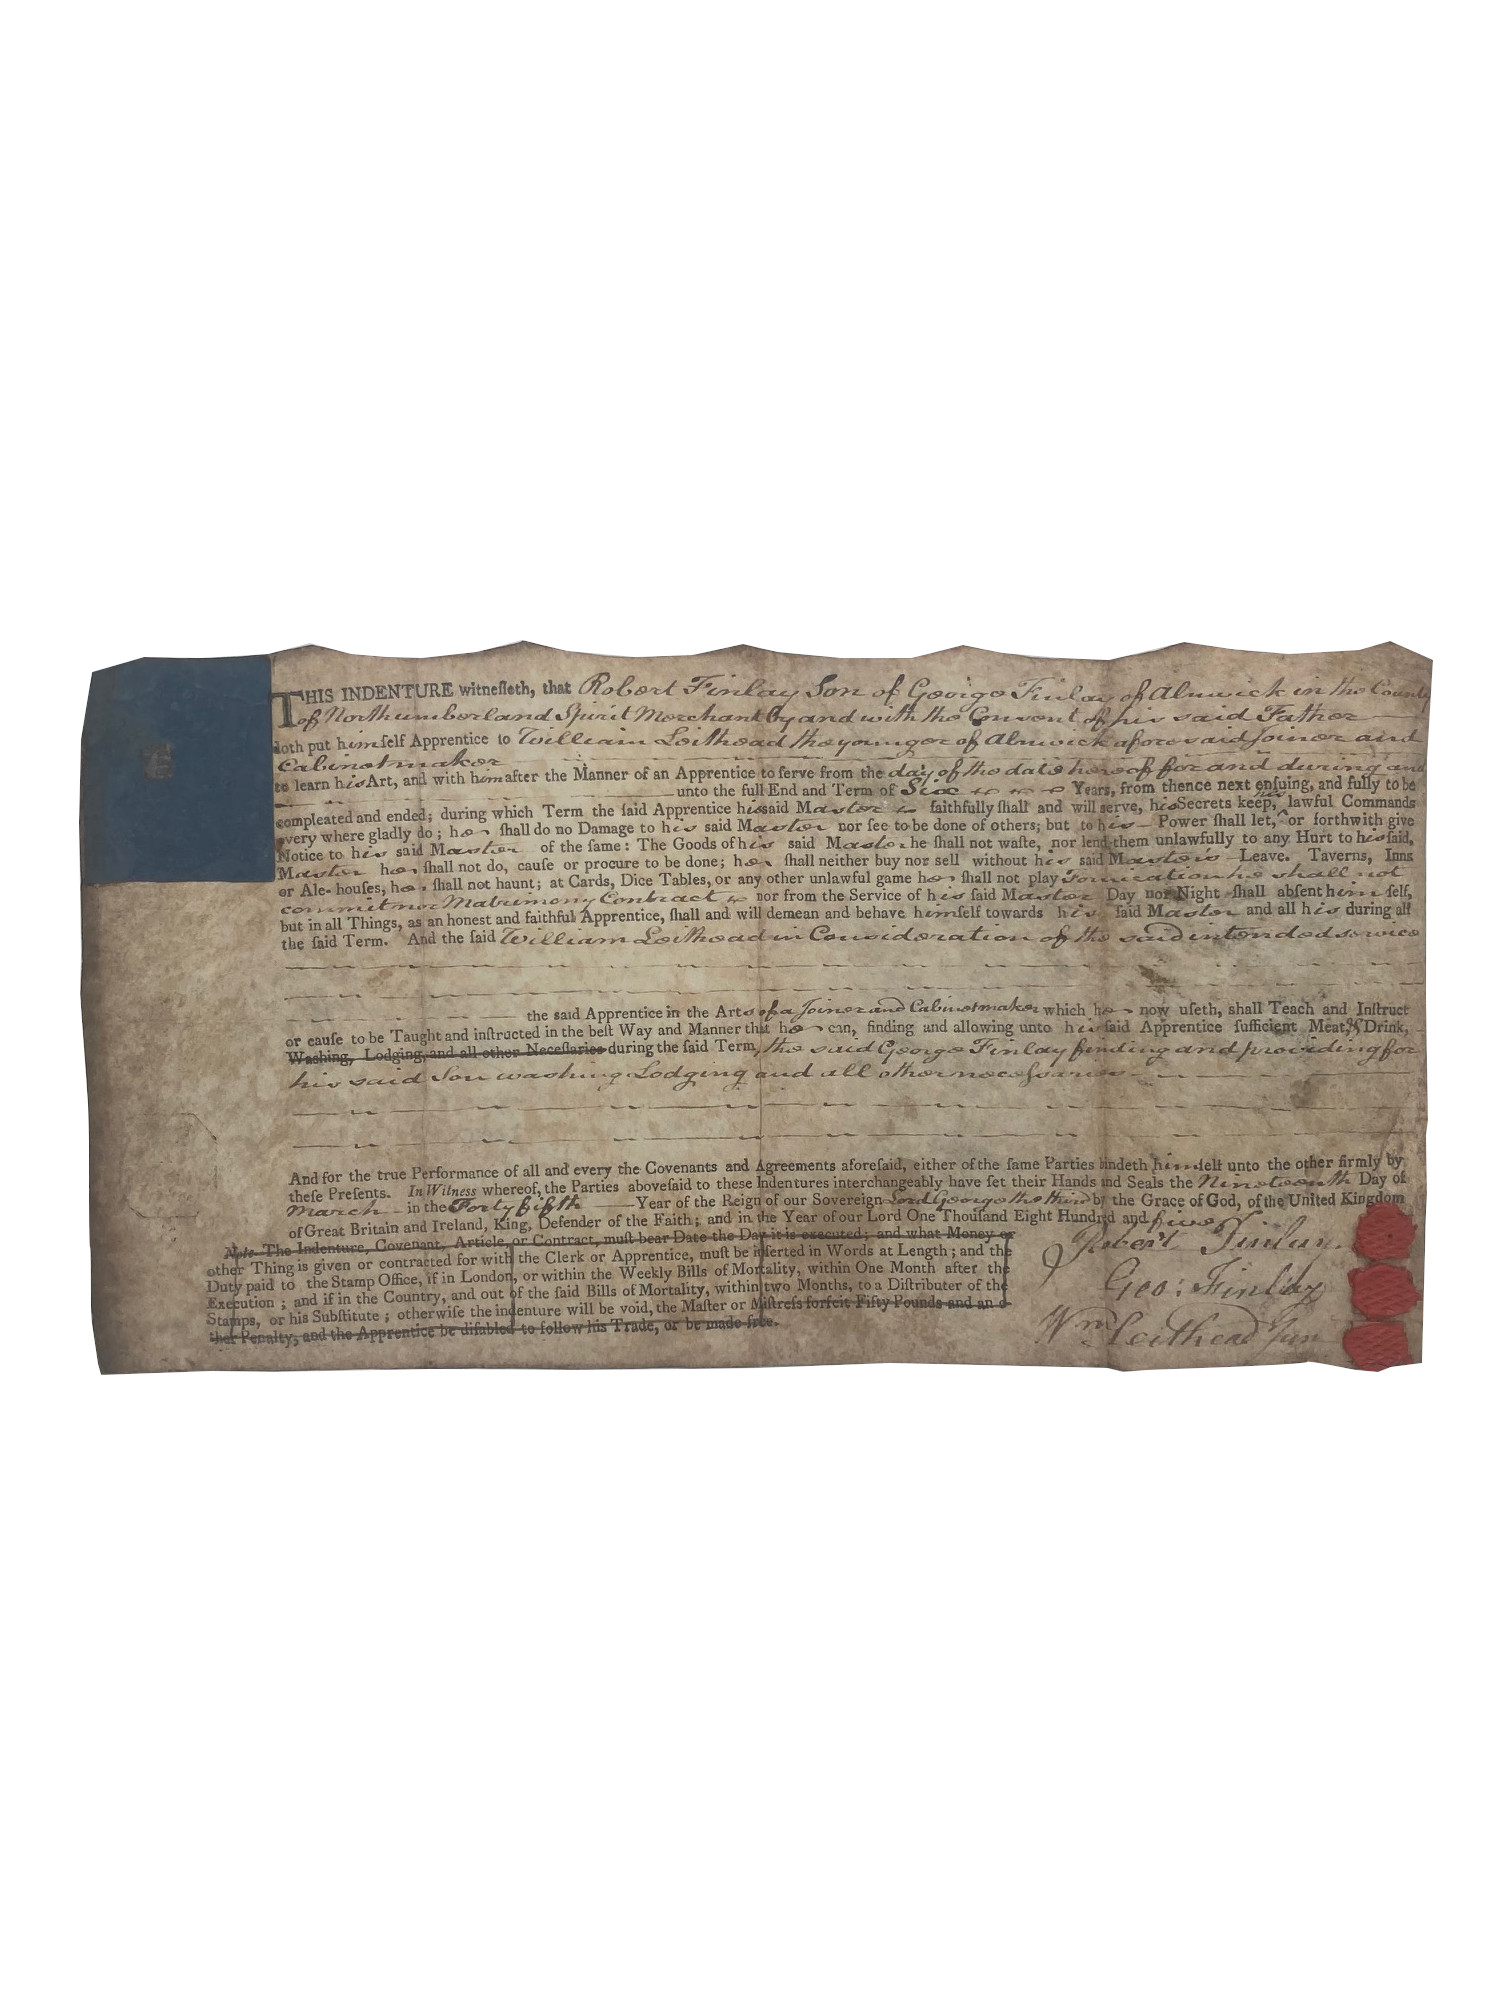 THIS INDENTURE witneſſeth, that Robert Finlay Son of George Finlay of Alnwick in the County
of Northumberland Spirit Merchant by and with the Consent of his said Father
doth put himſelf Apprentice to William Leithead the younger of Alnwick aforesaid Joiner and
Cabinetmaker
to learn his Art, and with him after the Manner of an Apprentice to ſerve from the day of the date hereof for and during and
unto the full End and Term of Six Years, from thence next enſuing, and fully to be
compleated and ended; during which Term the ſaid Apprentice his said Master faithfully ſhall and will serve, his Secrets keep, his lawful Commands
every where gladly do; he ſhall do no Damage to his said Master nor ſee to be done of others; but to his Power ſhall let, or forthwith give
Notice to his said Master of the ſame: The Goods of his said Master he ſhall not waſte, nor lend them unlawfully to any Hurt to his ſaid,
Master he ſhall not do, cauſe or procure to be done; he ſhall neither buy nor sell without his said Master's Leave. Taverns, Inns
or Ale-houſes, he ſhall not haunt; at Cards, Dice Tables, or any other unlawful game he ſhall not play Fornication he shall not
commit nor Matrimony Contract nor from the Service of his ſaid Master Day nor Night ſhall absent himſelf,
but in all Things, as an honest and faithful Apprentice, ſhall and will demean and behave himſelf towards his ſaid Master and all his during all
the ſaid Term. And the ſaid William Leithead in Consideration of the said intended service
the said Apprentice in the Arts of a Joiner and Cabinetmaker which he now uſeth, shall Teach and Inſtruct
or cauſe to be Taught and inſtructed in the beſt Way and Manner that he can, finding and allowing unto his ſaid Apprentice ſufficient Meat, & Drink,
Washing, Lodging, and all other Neceſſaries during the ſaid Term, the said George Finlay finding and providing for
his said Son washing Lodging and all other necessaries
And for the true Performance of all and every the Covenants and Agreements aforeſaid, either of the ſame Parties bindeth himſelf unto the other firmly by
theſe Preſents. In Witness whereof, the Parties aboveſaid to these Indentures interchangeably have ſet their Hands and Seals the Nineteenth Day of
March in the Forty fifth Year of the Reign of our Sovereign Lord George the third by the Grace of God, of the United Kingdom
of Great Britain and Ireland, King, Defender of the Faith; and in the Year of our Lord One Thouſand Eight Hundred and five
Note The Indenture, Covenant, Article, or Contract, muſt bear Date the Day it is executed; and what Money or
other Thing is given or contracted for with the Clerk or Apprentice, muſt be inſerted in Words at Length; and the
Duty paid to the Stamp Office, if in London, or within the Weekly Bills of Mortality, within One Month after the
Execution; and if in the Country, and out of the ſaid Bills of Mortality, within two Months, to a Diſtributer of the
Stamps, or his Subſtitute; otherwiſe the indenture will be void, the Maſter or Miſtreſs forfeit Fifty Pounds and an o-
ther Penalty, and the Apprentice be diſabled to follow his Trade, or be made free.
Robert Finlay.
Geo: Finlay
Wm Leithead Jun